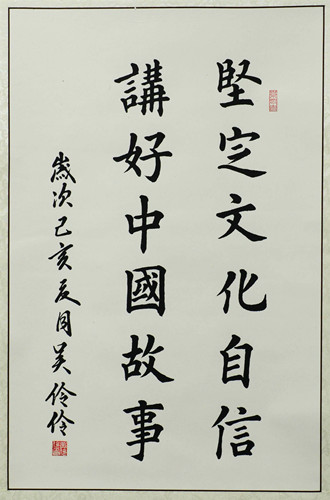 堅定文化自信
講好中國故事
歲次己亥夏月吴伶伶